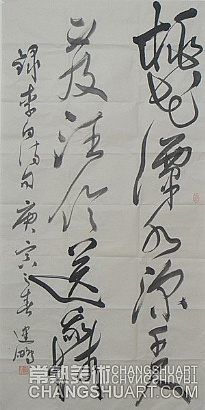 桃花潭水深千尺
不及汪伦送我情
録李白诗句庚寅之春建鹏
常熟美術CHANGSHUART
CHANGSHUART.COM